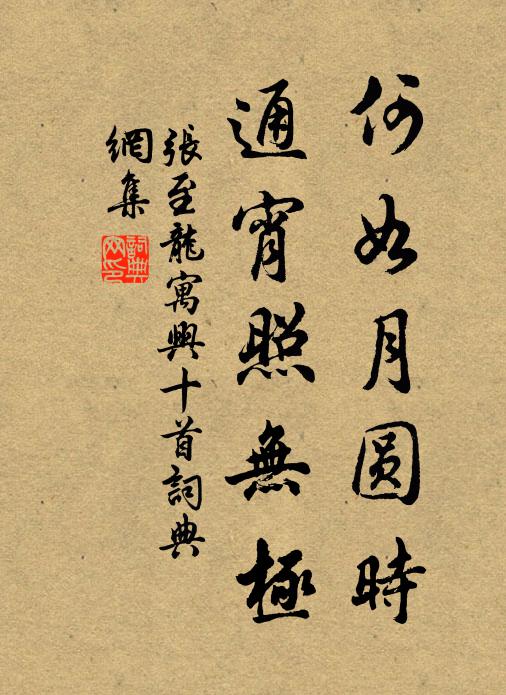 何如月圆時
通宵照無極
張至龍寓興十首詞典
網集
詞典
网印